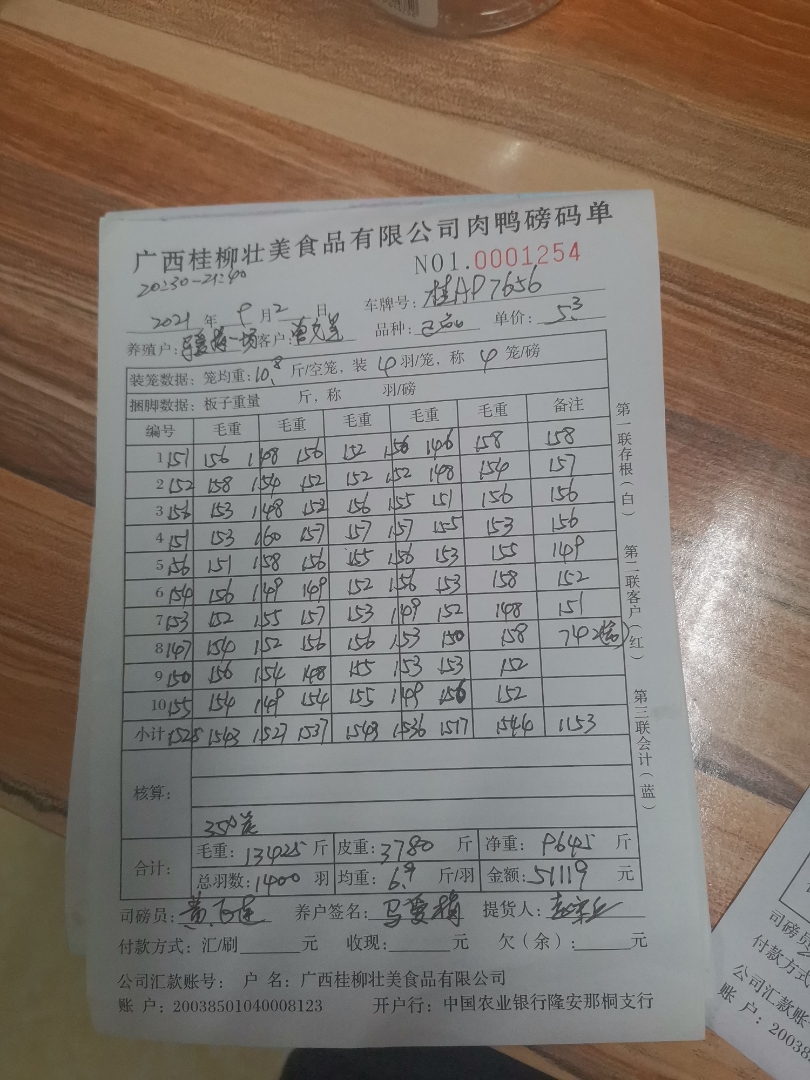 广西桂柳壮美食品有限公司肉鸭磅码单
20:30-21:40
NO1.0001254
2021 年 9 月 2 日 车牌号: 桂AP7656
养殖户: 客户: 品种: 单价: 5.3
装笼数据: 笼均重: 10.8 斤/空笼, 装 4 羽/笼, 称 4 笼/磅
捆脚数据: 板子重量 斤, 称 羽/磅
编号 毛重 毛重 毛重 毛重 毛重 备注
1 151 156 148 156 152 156 146 158 158
2 152 158 154 152 152 152 148 154 157
3 156 153 148 152 156 155 151 156 156
4 151 153 160 157 157 157 155 153 156
5 156 151 158 156 155 156 153 155 149
6 154 156 149 149 152 156 153 158 152
7 153 152 155 157 153 149 152 148 151
8 147 154 152 156 156 153 150 158 74
9 150 156 154 148 155 153 153 152
10 155 154 149 154 155 149 156 152
小计 1525 1543 1527 1537 1543 1536 1517 1544 1153
核算:
350笼
合计: 毛重: 13425 斤 皮重: 3780 斤 净重: 9645 斤
总羽数: 1400 羽 均重: 6.9 斤/羽 金额: 51119 元
司磅员: 养户签名: 提货人:
付款方式: 汇/刷 元 收现: 元 欠(余): 元
公司汇款账号: 户 名: 广西桂柳壮美食品有限公司
账 户: 20038501040008123 开户行: 中国农业银行隆安那桐支行
第一联存根(白)
第二联客户(红)
第三联会计(蓝)
司磅员:
付款方式
公司汇款账
账 户: 20038